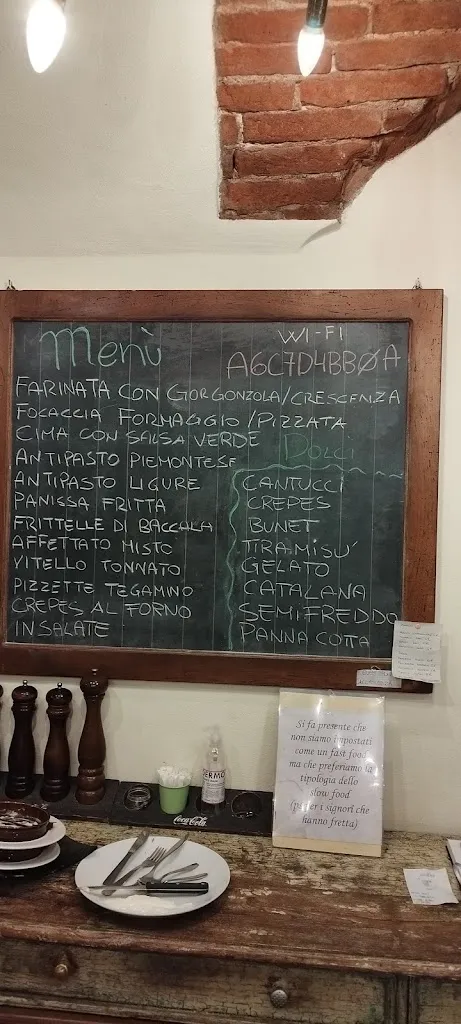 Menù
WI-FI
A6C7D4BBØA
FARINATA CON GORGONZOLA/CRESCENZA
FOCACCIA FORMAGGIO/PIZZATA
CIMA CON SALSA VERDE
ANTIPASTO PIEMONTESE
ANTIPASTO LIGURE
PANISSA FRITTA
FRITTELLE DI BACCALA
AFFETTATO MISTO
VITELLO TONNATO
PIZZETTE TEGAMINO
CREPES AL FORNO
INSALATE
DOLCI
CANTUCCI
CREPES
BUNET
TIRAMISU'
GELATO
CATALANA
SEMIFREDDO
PANNA COTTA
Si fa presente che
non siamo impostati
come un fast food
ma che preferiamo la
tipologia dello
slow food
(per i signori che
hanno fretta)
Coca-Cola